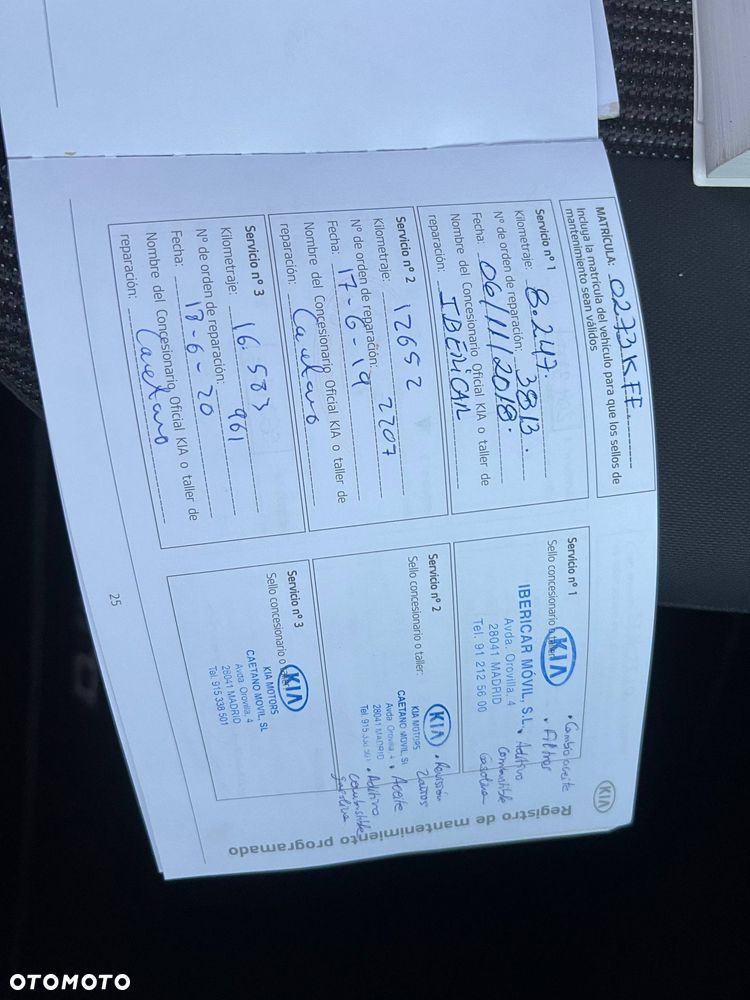 KIA
Registro de mantenimiento programado
MATRÍCULA: 0273KFF
Incluya la matrícula del vehículo para que los sellos de
mantenimiento sean válidos
Servicio nº 1
Kilometraje: 8.247.
Nº de orden de reparación: 3813.
Fecha: 06/11/2018.
Nombre del Concesionario Oficial KIA o taller de
reparación: IBERICAR
Servicio nº 1
Sello concesionario o taller:
KIA
IBERICAR MÓVIL, S.L.
Avda. Orovilla, 4
28041 MADRID
Tel. 91 212 56 00
• Cambio aceite
• Filtros
• Aditivo
Combustible
Gasolina
Servicio nº 2
Kilometraje: 12652
Nº de orden de reparación: 2207
Fecha: 17-6-19
Nombre del Concesionario Oficial KIA o taller de
reparación: Caetano
Servicio nº 2
Sello concesionario o taller:
KIA
KIA MOTORS
CAETANO MOVIL, SL
Avda Orovilla, 4
28041 MADRID
Tel. 915 338 501
• Revisión
2 años
• Aceite
• Aditivo
combustible
gasolina
Servicio nº 3
Kilometraje: 16.583
Nº de orden de reparación: 961
Fecha: 18-6-20
Nombre del Concesionario Oficial KIA o taller de
reparación: Caetano
Servicio nº 3
Sello concesionario o taller:
KIA
KIA MOTORS
CAETANO MOVIL, SL
Avda Orovilla, 4
28041 MADRID
Tel. 915 338 501
25
OTOMOTO